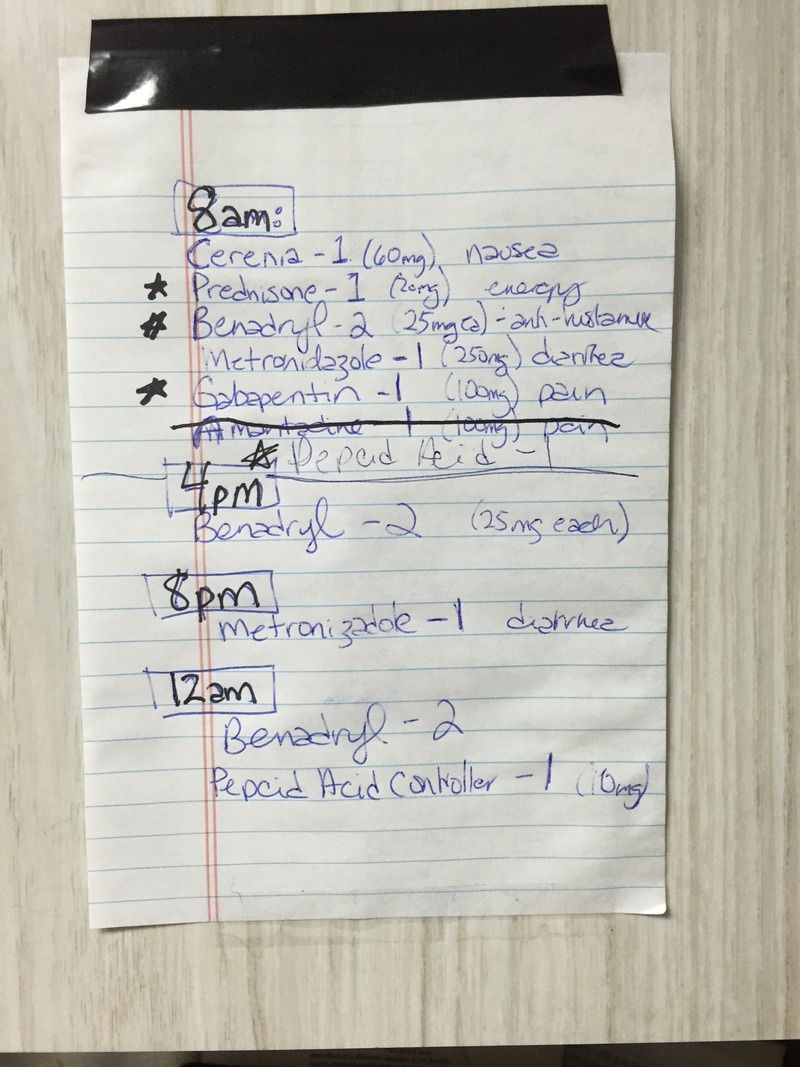 8am:
Cerenia - 1 (60mg) nausea
★ Prednisone - 1 (20mg) energy
★ Benadryl - 2 (25mg ea) - anti-histamine
Metronidazole - 1 (250mg) diarrhea
★ Gabapentin - 1 (100mg) pain
Amantadine - 1 (100mg) pain
★ Pepcid Acid - 1
4pm
Benadryl - 2 (25mg each)
8pm
Metronizadole - 1 diarrhea
12am
Benadryl - 2
Pepcid Acid Controller - 1 (10mg)